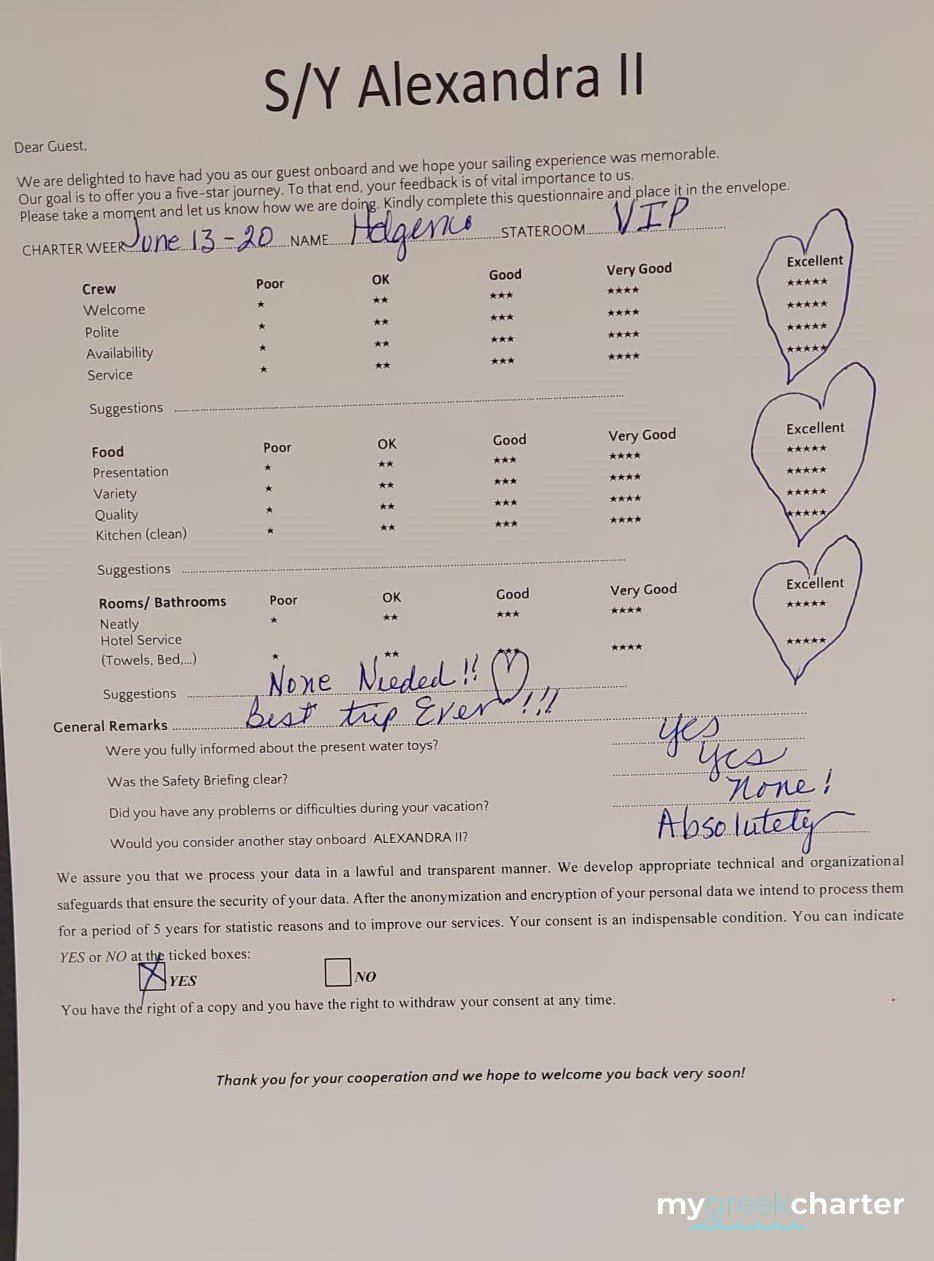 S/Y Alexandra II
Dear Guest,
We are delighted to have had you as our guest onboard and we hope your sailing experience was memorable.
Our goal is to offer you a five-star journey. To that end, your feedback is of vital importance to us.
Please take a moment and let us know how we are doing. Kindly complete this questionnaire and place it in the envelope.
CHARTER WEEK June 13-20 NAME STATEROOM VIP
Crew Poor OK Good Very Good Excellent
Welcome ★ ★★ ★★★ ★★★★ ★★★★★
Polite ★ ★★ ★★★ ★★★★ ★★★★★
Availability ★ ★★ ★★★ ★★★★ ★★★★★
Service ★ ★★ ★★★ ★★★★ ★★★★★
Suggestions
Food Poor OK Good Very Good Excellent
Presentation ★ ★★ ★★★ ★★★★ ★★★★★
Variety ★ ★★ ★★★ ★★★★ ★★★★★
Quality ★ ★★ ★★★ ★★★★ ★★★★★
Kitchen (clean) ★ ★★ ★★★ ★★★★ ★★★★★
Suggestions
Rooms/ Bathrooms Poor OK Good Very Good Excellent
Neatly ★ ★★ ★★★ ★★★★ ★★★★★
Hotel Service
(Towels, Bed,...) ★ ★★ ★★★ ★★★★ ★★★★★
Suggestions None Needed!!
General Remarks Best trip Ever!!!
Were you fully informed about the present water toys? yes
Was the Safety Briefing clear? yes
Did you have any problems or difficulties during your vacation? none!
Would you consider another stay onboard ALEXANDRA II? Absolutety
We assure you that we process your data in a lawful and transparent manner. We develop appropriate technical and organizational
safeguards that ensure the security of your data. After the anonymization and encryption of your personal data we intend to process them
for a period of 5 years for statistic reasons and to improve our services. Your consent is an indispensable condition. You can indicate
YES or NO at the ticked boxes:
YES NO
You have the right of a copy and you have the right to withdraw your consent at any time.
Thank you for your cooperation and we hope to welcome you back very soon!
mygreekcharter